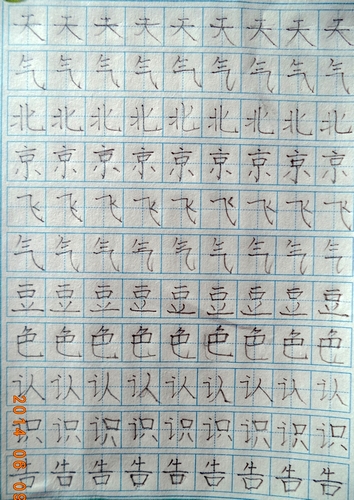 天天天天天天天天天
气气气气气气气气气
北北北北北北北北北
京京京京京京京京京
飞飞飞飞飞飞飞飞飞
气气气气气气气气气
豆豆豆豆豆豆豆豆豆
色色色色色色色色色
认认认认认认认认认
识识识识识识识识识
告告告告告告告告告
2014 06 09